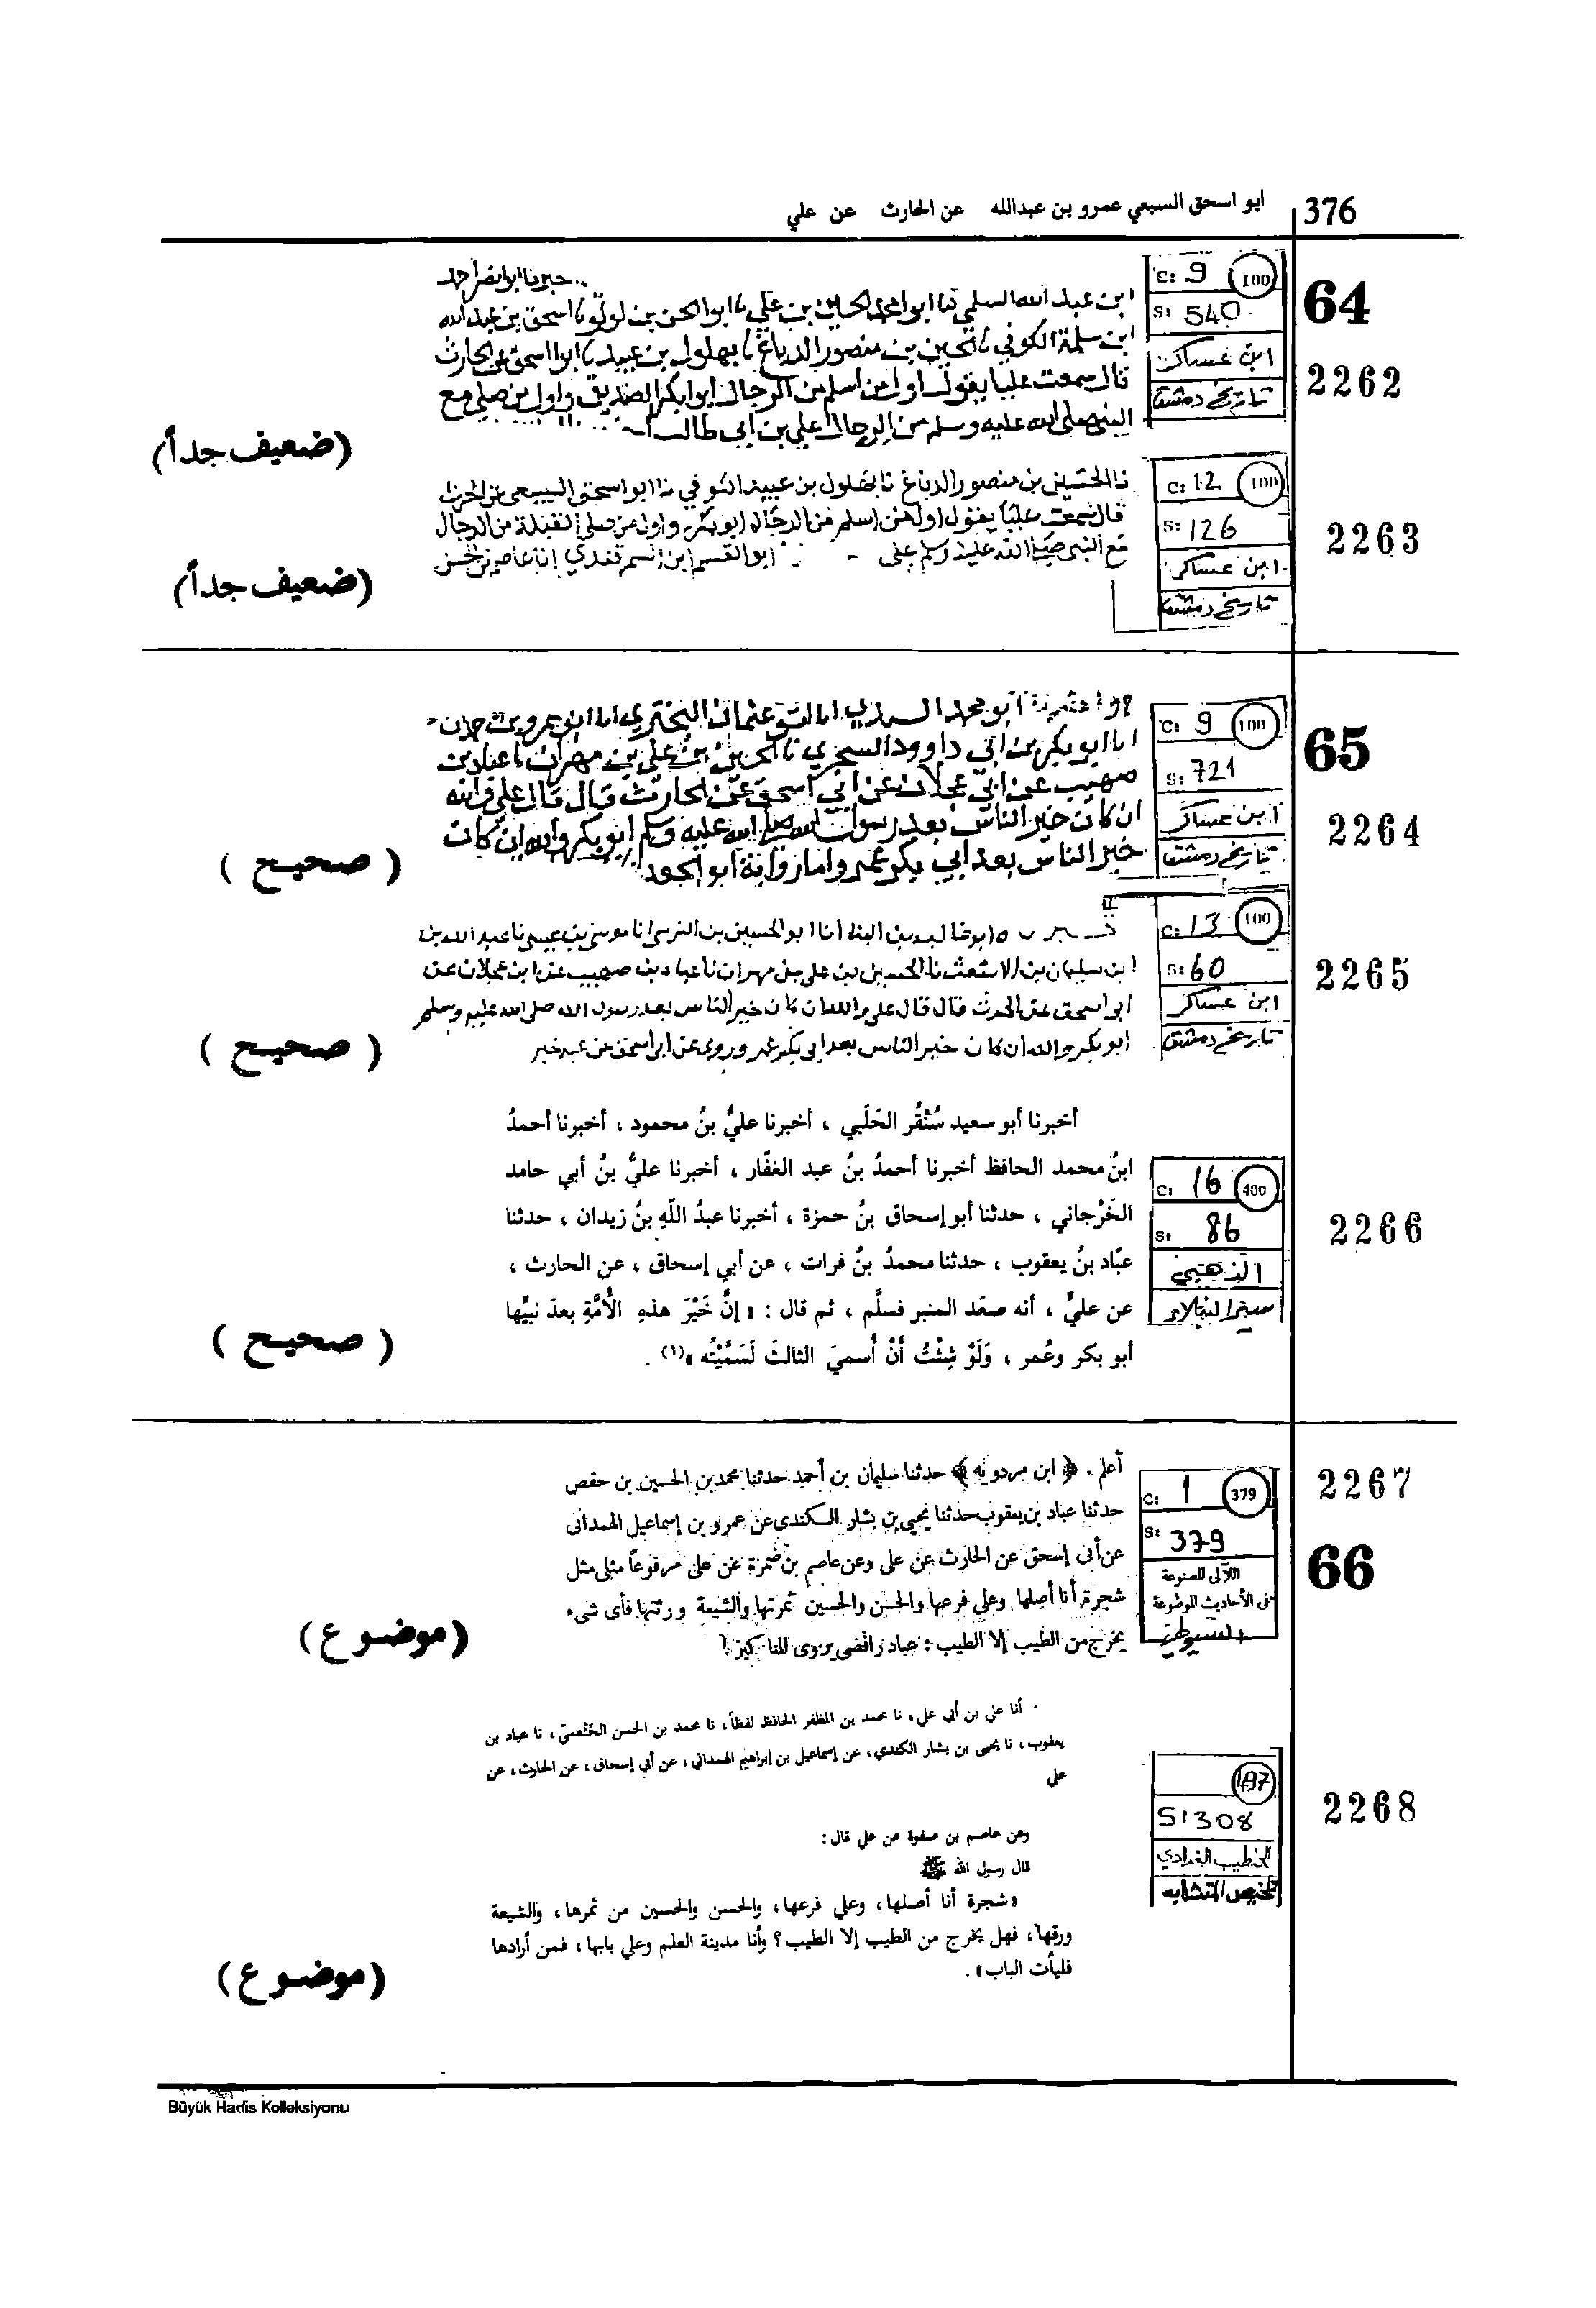 376 ابو اسحق السبعي عمرو بن عبدالله عن الحارث عن علي
64
C: 9 100
S: 540
ابن عساكر
تاريخ دمشق
2262
ابن عبد الله السلمي
ابن سلمة الكوفي نا الحسين بن منصور الدباغ نا بهلول بن عبيد نا ابو اسحق عن الحارث
قال سمعت عليا يقول اول من اسلم من الرجال ابو بكر الصديق واول من صلى مع
النبي صلى الله عليه وسلم من الرجال علي بن ابي طالب
(ضعيف جداً)
C: 12 100
S: 126
ابن عساكر
تاريخ دمشق
2263
نا الحسين بن منصور الدباغ نا بهلول بن عبيد الكوفي نا ابو اسحق السبيعي عن الحرث
قال سمعت عليا يقول اول من اسلم من الرجال ابو بكر واول من صلى القبلة من الرجال
مع النبي صلى الله عليه وسلم علي ابو القسم ابن السمرقندي انا عاصم بن الحسن
(ضعيف جداً)
65
C: 9 100
S: 721
ابن عساكر
تاريخ دمشق
2264
انا ابو بكر بن ابي داوود السجزي نا الحسين بن علي بن مهران نا عباد بن
صهيب عن ابن عجلان عن ابي اسحق عن الحارث قال قال علي والله
ان كان خير الناس بعد رسول الله صلى الله عليه وسلم ابو بكر والله ان كان
خير الناس بعد ابي بكر عمر واما رواية ابو الجود
(صحيح)
C: 13 100
S: 60
ابن عساكر
تاريخ دمشق
2265
ابو غالب بن البنا انا ابو الحسين بن النرسي انا موسى بن عيسى نا عبد الله بن
ابن سليمان بن الاشعث نا الحسين بن علي بن مهران نا عباد بن صهيب عن ابن عجلان عن
ابو اسحق عن الحرث قال قال علي والله ان كان خير الناس بعد رسول الله صلى الله عليه وسلم
ابو بكر والله ان كان خير الناس بعد ابي بكر عمر وروى عن ابي اسحق عن عبد خير
(صحيح)
أخبرنا أبو سعيد سُنْقُر الحَلَبي ، أخبرنا عليُّ بنُ محمود ، أخبرنا أحمدُ
ابنُ محمد الحافظ أخبرنا أحمدُ بنُ عبد الغفّار ، أخبرنا عليُّ بنُ أبي حامد
الخَرْجاني ، حدثنا أبو إسحاق بنُ حمزة ، أخبرنا عبدُ اللّهِ بنُ زيدان ، حدثنا
عبّاد بنُ يعقوب ، حدثنا محمدُ بنُ فرات ، عن أبي إسحاق ، عن الحارث ،
عن عليٍّ ، أنه صعَد المنبر فسلَّم ، ثم قال : « إنَّ خَيْرَ هذهِ الأُمَّةِ بعدَ نبيِّها
أبو بكر وعُمر ، وَلَوْ شِئْتُ أَنْ أُسميَ الثالثَ لَسَمَّيْتُه »(١) .
C: 16 400
S: 86
الذهبي
سير النبلاء
2266
(صحيح)
2267
C: 1 379
S: 379
66
اللآلى المصنوعة
فى الأحاديث الموضوعة
السيوطي
أعلم . ﴿ ابن مردويه ﴾ حدثنا سليمان بن أحمد حدثنا محمد بن الحسين بن حفص
حدثنا عباد بن يعقوب حدثنا يحيى بن بشار الكندى عن عمرو بن إسماعيل الهمدانى
عن أبى إسحق عن الحارث عن على وعن عاصم بن ضمرة عن على مرفوعاً مثلى مثل
شجرة أنا أصلها وعلى فرعها والحسن والحسين ثمرتها والشيعة ورقها فأى شىء
يخرج من الطيب إلا الطيب : عباد رافضى يروى المناكير
(موضوع)
أنا علي بن أبي علي، نا محمد بن المظفر الحافظ لفظاً، نا محمد بن الحسن الخثعمي، نا عباد بن
يعقوب، نا يحيى بن بشار الكندي، عن إسماعيل بن إبراهيم الهمداني، عن أبي إسحاق، عن الحارث، عن
علي
وعن عاصم بن صفوة عن علي قال:
قال رسول الله ﷺ
«شجرة أنا أصلها، وعلي فرعها، والحسن والحسين من ثمرها، والشيعة
ورقها، فهل يخرج من الطيب إلا الطيب؟ وأنا مدينة العلم وعلي بابها، فمن أرادها
فليأت الباب».
S: 308
الخطيب البغدادي
تلخيص المتشابه
2268
(موضوع)
Büyük Hadis Kolleksiyonu